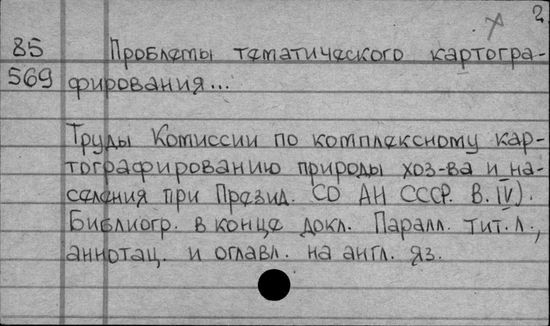 2
85 Проблемы тематического картогра-
569 фирования...
Труды Комиссии по комплексному кар-
тографированию природы хоз-ва и на-
селения при Презид. СО АН СССР. В. IV).
Библиогр. в конце докл. Паралл. тит. л.,
аннотац. и оглавл. на англ. яз.